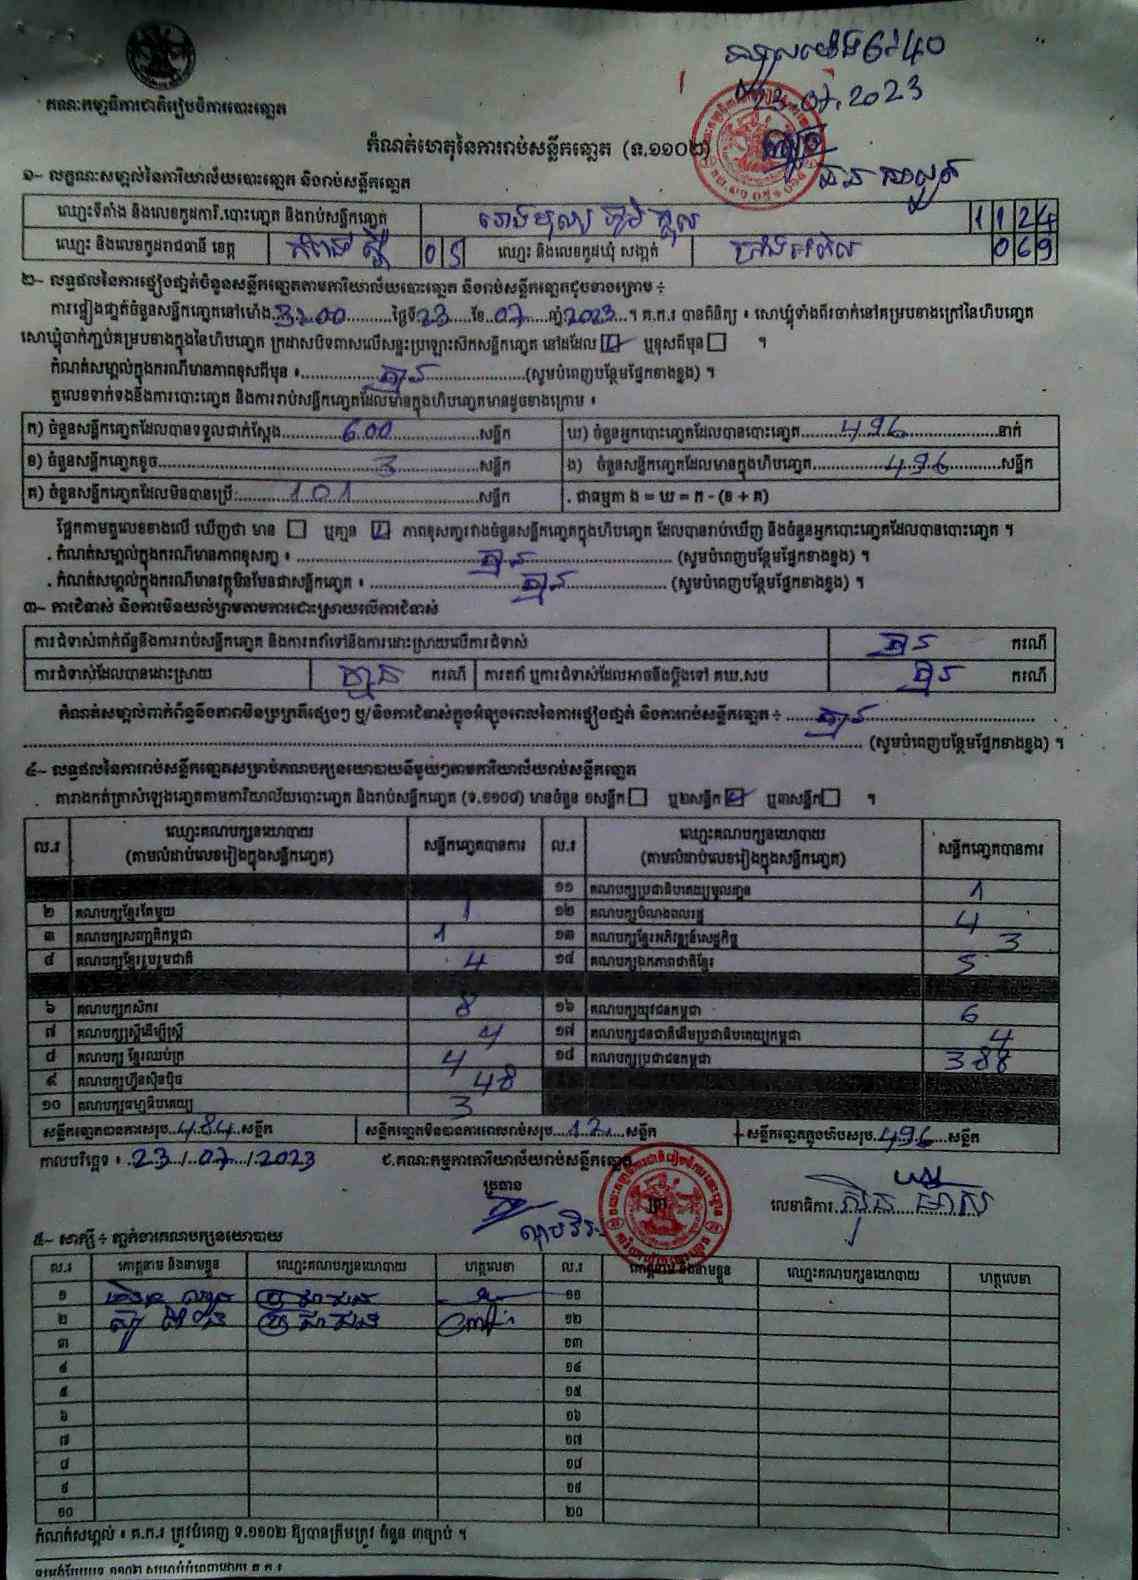 គណៈកម្មាធិការជាតិរៀបចំការបោះឆ្នោត
23.07.2023
កំណត់ហេតុនៃការរាប់សន្លឹកឆ្នោត (ទ.១១០២)
១- លក្ខណៈសម្គាល់នៃការិយាល័យបោះឆ្នោត និងរាប់សន្លឹកឆ្នោត
ឈ្មោះទីតាំង និងលេខកូដការិ.បោះឆ្នោត និងរាប់សន្លឹកឆ្នោត 1124
ឈ្មោះ និងលេខកូដរាជធានី ខេត្ត កំពង់ស្ពឺ 05 ឈ្មោះ និងលេខកូដឃុំ សង្កាត់ 069
២- លទ្ធផលនៃការផ្ទៀងផ្ទាត់ចំនួនសន្លឹកឆ្នោតតាមការិយាល័យបោះឆ្នោត និងរាប់សន្លឹកឆ្នោតដូចខាងក្រោម ÷
ការផ្ទៀងផ្ទាត់ចំនួនសន្លឹកឆ្នោតនៅម៉ោង ថ្ងៃទី 23 ខែ 07 ឆ្នាំ 2023 ។ គ.ក.រ បានពិនិត្យ ៖ សោឃ្មុំទាំងពីរចាក់នៅគម្របខាងក្រៅនៃហិបឆ្នោត
សោឃ្មុំចាក់ភ្ជាប់គម្របខាងក្នុងនៃហិបឆ្នោត ក្រដាសបិទពាសលើសន្ទះប្រឡោះសៀកសន្លឹកឆ្នោត នៅដដែល ឬខុសពីមុន ។
កំណត់សម្គាល់ក្នុងករណីមានភាពខុសពីមុន ៖ គ្មាន (សូមបំពេញបន្ថែមផ្នែកខាងខ្នង) ។
តួលេខទាក់ទងនឹងការបោះឆ្នោត និងការរាប់សន្លឹកឆ្នោតដែលមានក្នុងហិបឆ្នោតមានដូចខាងក្រោម ៖
ក) ចំនួនសន្លឹកឆ្នោតដែលបានទទួលជាក់ស្តែង 600 សន្លឹក ឃ) ចំនួនអ្នកបោះឆ្នោតដែលបានបោះឆ្នោត 496 នាក់
ខ) ចំនួនសន្លឹកឆ្នោតខូច 3 សន្លឹក ង) ចំនួនសន្លឹកឆ្នោតដែលមានក្នុងហិបឆ្នោត 496 សន្លឹក
គ) ចំនួនសន្លឹកឆ្នោតដែលមិនបានប្រើ 101 សន្លឹក . ជាធម្មតា ង = ឃ = ក - (ខ + គ)
ផ្អែកតាមតួលេខខាងលើ ឃើញថា មាន ឬគ្មាន ភាពខុសគ្នារវាងចំនួនសន្លឹកឆ្នោតក្នុងហិបឆ្នោត ដែលបានរាប់ឃើញ និងចំនួនអ្នកបោះឆ្នោតដែលបានបោះឆ្នោត ។
. កំណត់សម្គាល់ក្នុងករណីមានភាពខុសគ្នា ៖ គ្មាន (សូមបំពេញបន្ថែមផ្នែកខាងខ្នង) ។
. កំណត់សម្គាល់ក្នុងករណីមានវត្ថុមិនមែនជាសន្លឹកឆ្នោត ៖ គ្មាន (សូមបំពេញបន្ថែមផ្នែកខាងខ្នង) ។
៣- ការជំទាស់ និងការមិនយល់ព្រមតាមការដោះស្រាយលើការជំទាស់
ការជំទាស់ពាក់ព័ន្ធនឹងការរាប់សន្លឹកឆ្នោត និងការតវ៉ាទៅនឹងការដោះស្រាយលើការជំទាស់ គ្មាន ករណី
ការជំទាស់ដែលបានដោះស្រាយ គ្មាន ករណី ការតវ៉ា ឬការជំទាស់ដែលអាចនឹងប្តឹងទៅ គឃ.សប គ្មាន ករណី
កំណត់សម្គាល់ពាក់ព័ន្ធនឹងភាពមិនប្រក្រតីផ្សេងៗ ឬ/និងការជំទាស់ក្នុងអំឡុងពេលនៃការផ្ទៀងផ្ទាត់ និងការរាប់សន្លឹកឆ្នោត ÷ គ្មាន
(សូមបំពេញបន្ថែមផ្នែកខាងខ្នង) ។
៤- លទ្ធផលនៃការរាប់សន្លឹកឆ្នោតសម្រាប់គណបក្សនយោបាយនីមួយៗតាមការិយាល័យរាប់សន្លឹកឆ្នោត
តារាងកត់ត្រាសំឡេងឆ្នោតតាមការិយាល័យបោះឆ្នោត និងរាប់សន្លឹកឆ្នោត (ទ.១១០៨) មានចំនួន ១សន្លឹក ឬ២សន្លឹក ឬ៣សន្លឹក ។
ល.រ ឈ្មោះគណបក្សនយោបាយ (តាមលំដាប់លេខរៀងក្នុងសន្លឹកឆ្នោត) សន្លឹកឆ្នោតបានការ ល.រ ឈ្មោះគណបក្សនយោបាយ (តាមលំដាប់លេខរៀងក្នុងសន្លឹកឆ្នោត) សន្លឹកឆ្នោតបានការ
១១ គណបក្សប្រជាធិបតេយ្យមូលដ្ឋាន 1
២ គណបក្សខ្មែរតែមួយ 1 ១២ គណបក្សបំណងពលរដ្ឋ 4
៣ គណបក្សសញ្ជាតិកម្ពុជា 1 ១៣ គណបក្សខ្មែរអភិវឌ្ឍន៍សេដ្ឋកិច្ច 3
៤ គណបក្សខ្មែររួបរួមជាតិ 4 ១៤ គណបក្សឯកភាពជាតិខ្មែរ 5
៦ គណបក្សកសិករ 8 ១៦ គណបក្សយុវជនកម្ពុជា 6
៧ គណបក្សស្ត្រីដើម្បីស្ត្រី 4 ១៧ គណបក្សជនជាតិដើមប្រជាធិបតេយ្យកម្ពុជា 4
៨ គណបក្ស ខ្មែរឈប់ក្រ 4 ១៨ គណបក្សប្រជាជនកម្ពុជា 388
៩ គណបក្សហ៊្វុនស៊ិនប៉ិច 48
១០ គណបក្សធម្មាធិបតេយ្យ 3
សន្លឹកឆ្នោតបានការសរុប 484 សន្លឹក សន្លឹកឆ្នោតមិនបានការពេលរាប់សរុប 12 សន្លឹក សន្លឹកឆ្នោតក្នុងហិបសរុប 496 សន្លឹក
កាលបរិច្ឆេទ ៖ 23/07/2023 ជ.គណៈកម្មការការិយាល័យរាប់សន្លឹកឆ្នោត
ប្រធាន លេខាធិការ
៥- សាក្សី ÷ ភ្នាក់ងារគណបក្សនយោបាយ
ល.រ គោត្តនាម និងនាមខ្លួន ឈ្មោះគណបក្សនយោបាយ ហត្ថលេខា ល.រ គោត្តនាម និងនាមខ្លួន ឈ្មោះគណបក្សនយោបាយ ហត្ថលេខា
១ ១១
២ ១២
៣ ១៣
៤ ១៤
៥ ១៥
៦ ១៦
៧ ១៧
៨ ១៨
៩ ១៩
១០ ២០
កំណត់សម្គាល់ ៖ គ.ក.រ ត្រូវបំពេញ ទ.១១០២ ឱ្យបានត្រឹមត្រូវ ចំនួន ៣ច្បាប់ ។